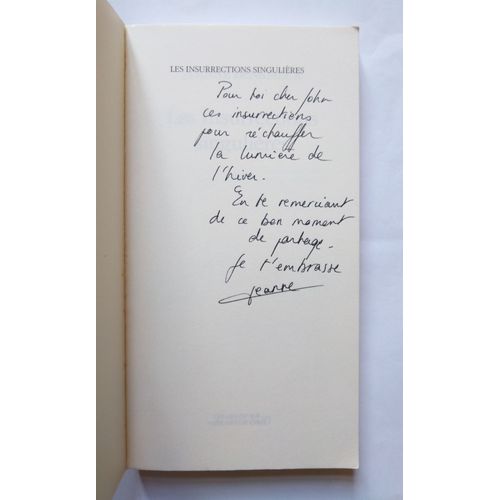 LES INSURRECTIONS SINGULIÈRES
Pour toi cher John
ces insurrections
pour réchauffer
la lumière de
l'hiver.
En te remerciant
de ce bon moment
de partage.
Je t'embrasse
Jeanne